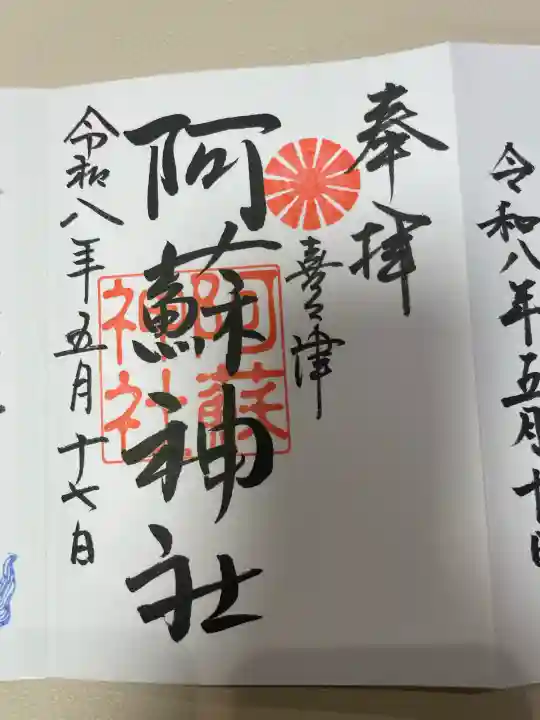 令和八年五月十日
奉拝
喜々津
阿蘇神社
阿蘇
神社
令和八年五月十七日